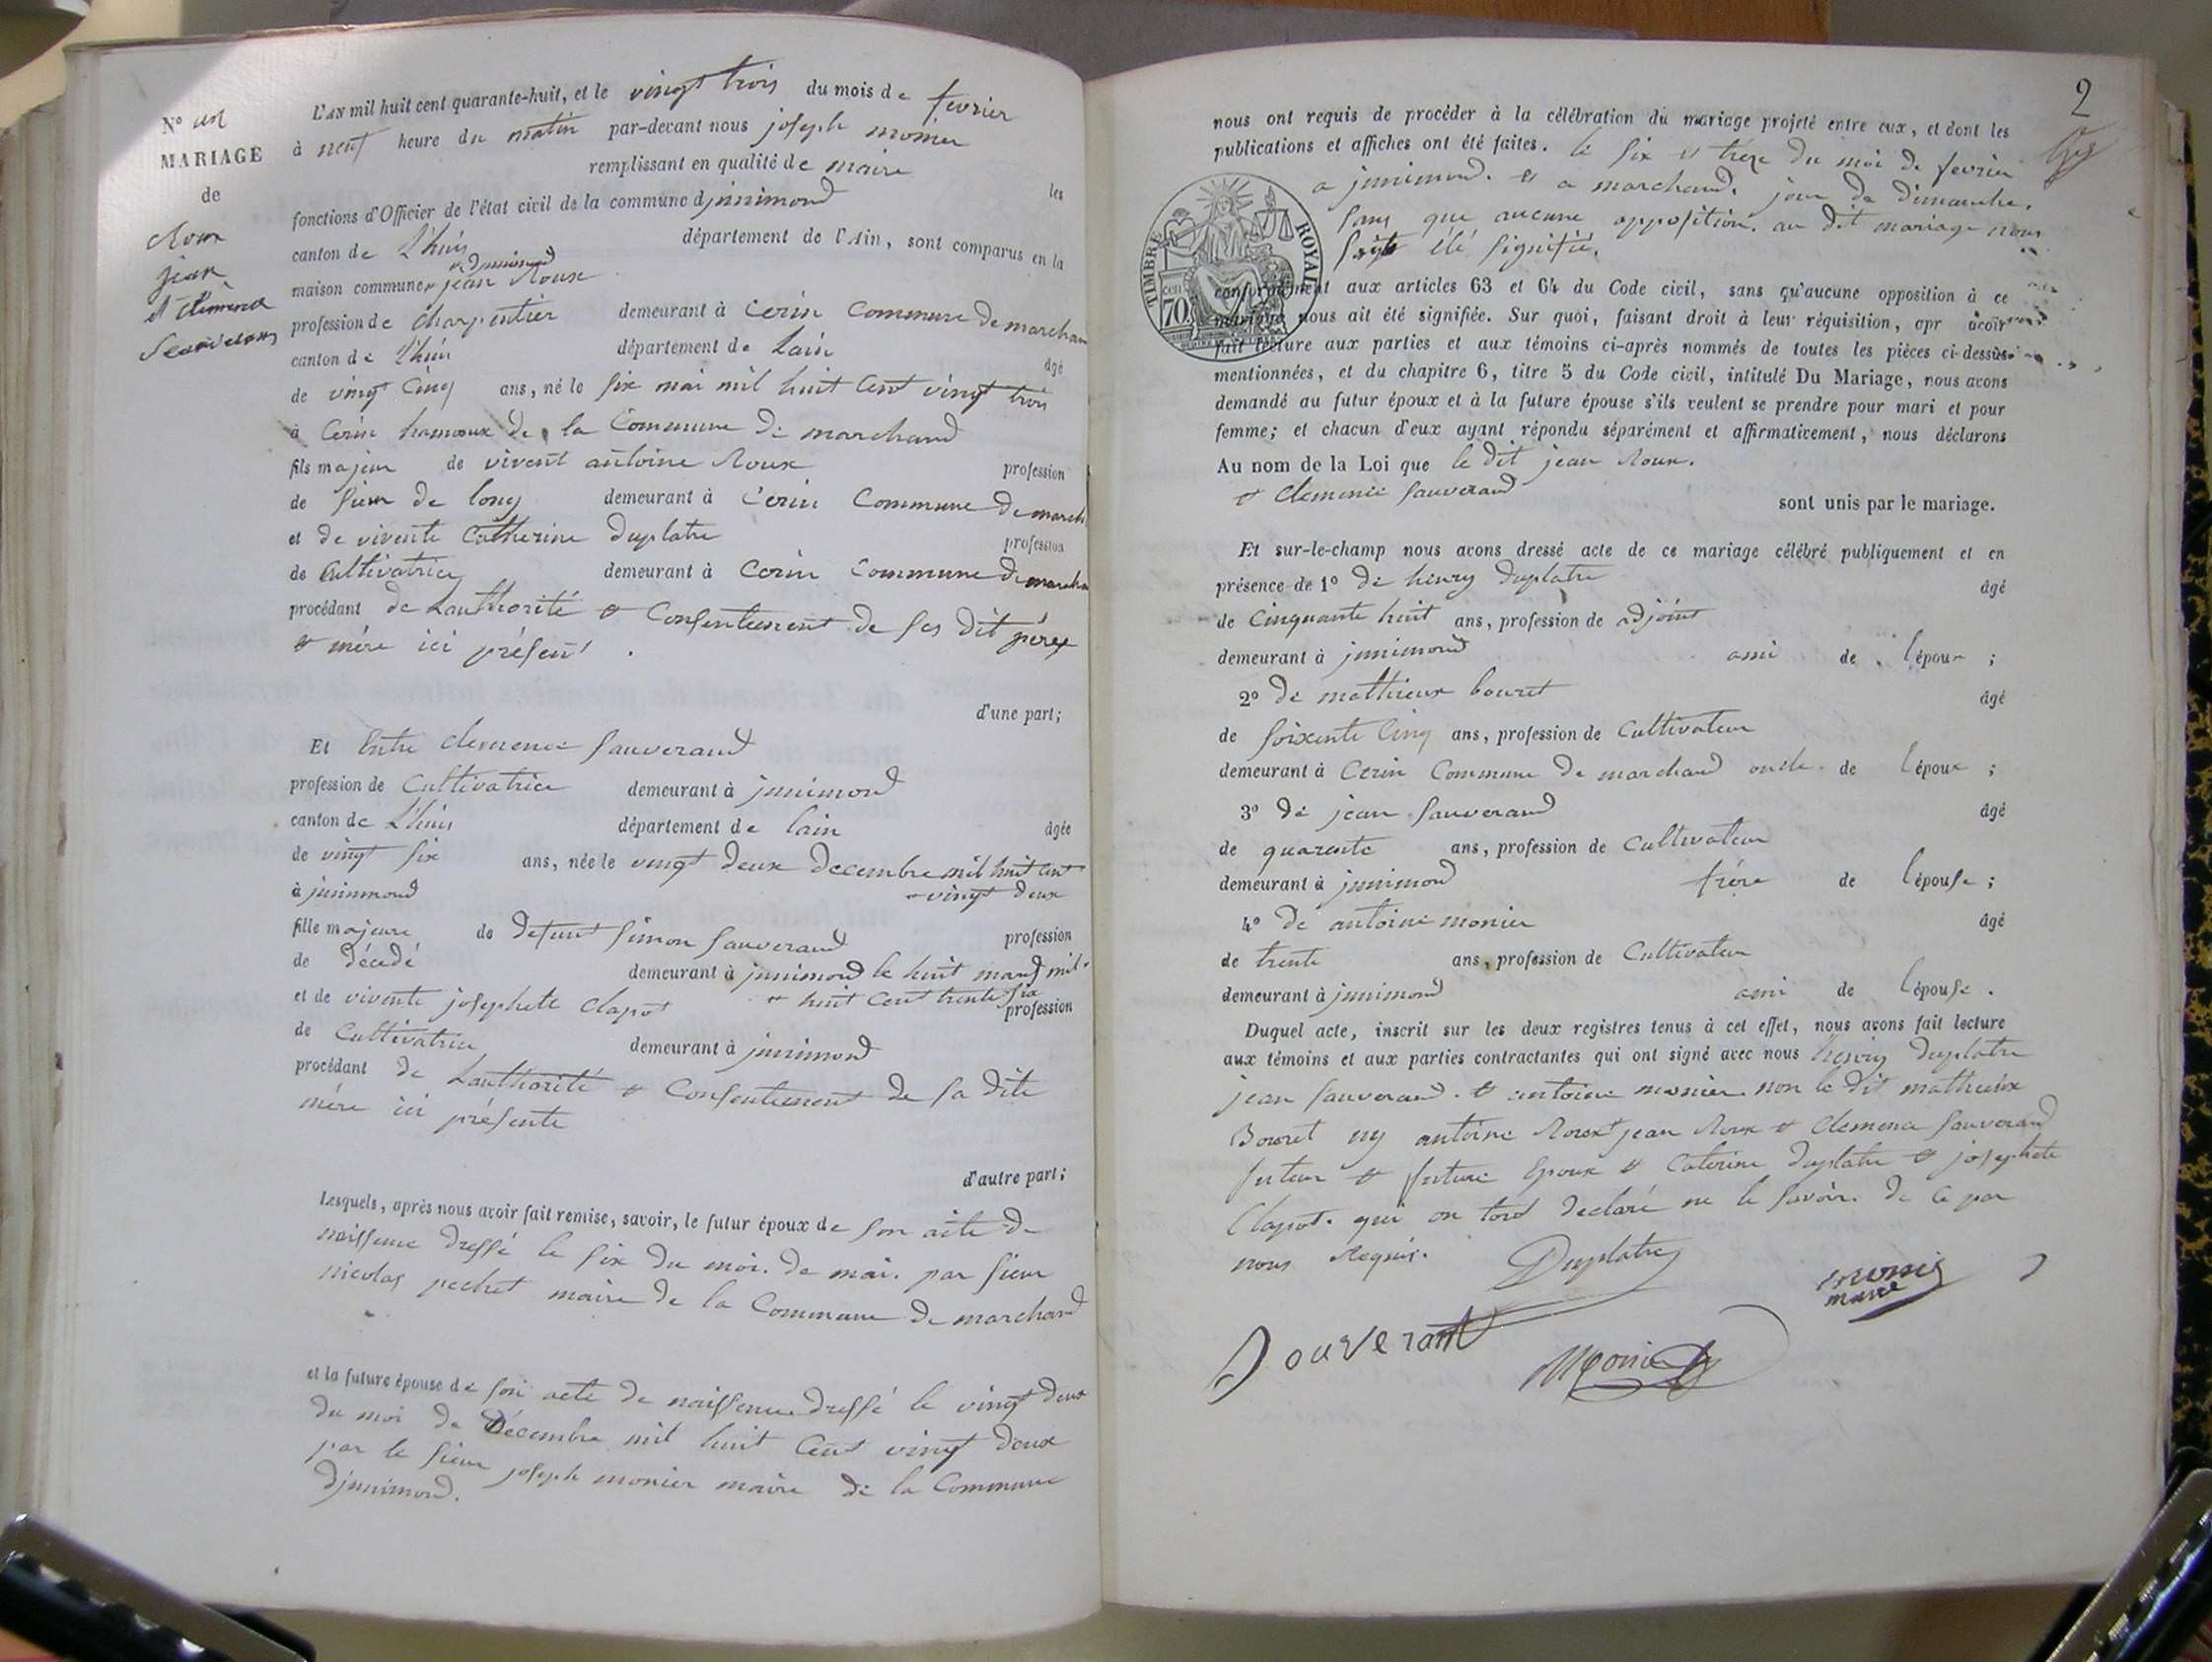 N° un
MARIAGE
de
Roux
jean
et clémence
Sauverand
L'AN mil huit cent quarante-huit, et le vingt trois du mois de fevrier
à neuf heure du matin par-devant nous joseph monier
remplissant en qualité de maire les
fonctions d'Officier de l'état civil de la commune djnnimond
canton de l'huis département de l'Ain, sont comparus en la
maison commune djnnimond jean Roux
profession de charpentier demeurant à Cerin Commune de marchan
canton de l'huis département de lain âgé
de vingt Cinq ans, né le six mai mil huit Cent vingt trois
à Cerin hamaux de la Commune de marchand
fils majeur de vivent antoine Roux profession
de sieur de long demeurant à Cerin Commune de march
et de vivente Catherine Duplatre profession
de Cultivatrice demeurant à Cerin Commune de marcha
procédant de Lauthorité et Consentement de ses dit pérex
et mére ici présent .
d'une part;
Et Entre clemence sauverand
profession de Cultivatrice demeurant à jnnimond
canton de l'huis département de lain âgée
de vingt six ans, née le vingt deux decembre mil huit cent
à jnnimond vingt deux
fille majeure de defunt simon sauverand profession
de décédé demeurant à jnnimond le huit mars mil
et de vivente josephete Clapot huit Cent trente six profession
de Cultivatrice demeurant à jnnimond
procédant de Lauthorité et Consentement de sa dite
mére ici présente
d'autre part;
Lesquels, après nous avoir fait remise, savoir, le futur époux de son acte de
naissence dressé le six du moi. de mai. par sieur
nicolas pechet maire de la Commune de marchand
et la future épouse de son acte de naissence dressé le vingt deux
du moi de décembre mil huit Cent vingt deux
par le sieur joseph monier maire de la Commune
djnnimond.
2
nous ont requis de procéder à la célébration du mariage projeté entre eux, et dont les
publications et affiches ont été faites. le six et treze du moi de fevrier
a jnnimond. et a marchand. jour de dimanche.
sans que aucune opposition. au dit mariage nous
soit été signifié.
TIMBRE ROYAL
cen 70
conformément aux articles 63 et 64 du Code civil, sans qu'aucune opposition à ce
mariage nous ait été signifiée. Sur quoi, faisant droit à leur réquisition, apr avoir
fait lecture aux parties et aux témoins ci-après nommés de toutes les pièces ci-dessus
mentionnées, et du chapitre 6, titre 5 du Code civil, intitulé Du Mariage, nous avons
demandé au futur époux et à la future épouse s'ils veulent se prendre pour mari et pour
femme; et chacun d'eux ayant répondu séparément et affirmativement, nous déclarons
Au nom de la Loi que le dit jean Roux.
et clemence sauverand
sont unis par le mariage.
Et sur-le-champ nous avons dressé acte de ce mariage célébré publiquement et en
présence de 1° de henry duplatre âgé
de Cinquante huit ans, profession de adjoint
demeurant à jnnimond ami de l'époux ;
2° de mathieux bouret âgé
de soixente Cinq ans, profession de Cultivateur
demeurant à Cerin Commune de marchand oncle de l'époux ;
3° de jean sauverand âgé
de quarente ans, profession de Cultivateur
demeurant à jnnimond frére de l'épouse ;
4° de antoine monier âgé
de trente ans, profession de Cultivateur
demeurant à jnnimond ami de l'épouse .
Duquel acte, inscrit sur les deux registres tenus à cet effet, nous avons fait lecture
aux témoins et aux parties contractantes qui ont signé avec nous henry duplatre
jean sauverand. et antoine monier. non le dit mathieux
Bouret ny antoine Roux jean Roux et clemence sauverand
futeur et future Epoux et Caterine duplatre et josephete
Clapot. qui on tous declaré ne le savoir. de ce par
nous Requis.
Duplatre
monier
maire
Souverant
Monier